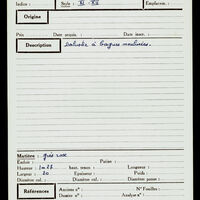 Indice : Style : XI - XII Emplacem. :
Origine
Prix Date acquis. : Date insct. :
Description Balustre à bagues moulurées.
Matière : grès rose
Enduit : Patine :
Hauteur : 1m27 haut. tenon : Longueur :
Largeur : 20 Epaisseur : Poids :
Diamètre col. : Diamètre panse :
Références Anciens n° : N° Fouilles :
Dossier n° : Analyse n° :